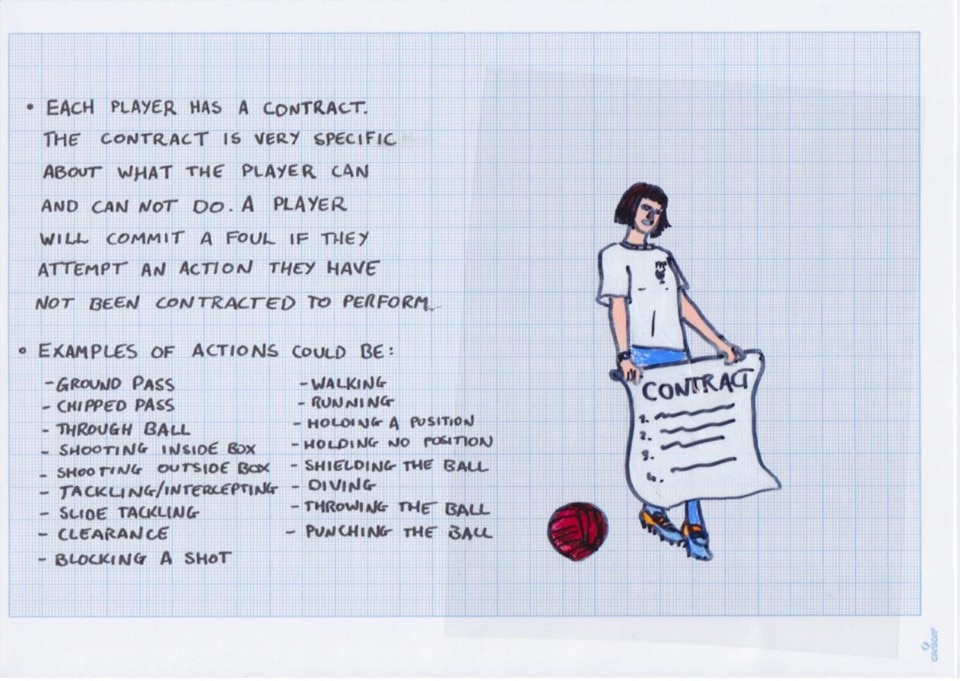 • EACH PLAYER HAS A CONTRACT.
THE CONTRACT IS VERY SPECIFIC
ABOUT WHAT THE PLAYER CAN
AND CAN NOT DO. A PLAYER
WILL COMMIT A FOUL IF THEY
ATTEMPT AN ACTION THEY HAVE
NOT BEEN CONTRACTED TO PERFORM.
• EXAMPLES OF ACTIONS COULD BE:
- GROUND PASS
- CHIPPED PASS
- THROUGH BALL
- SHOOTING INSIDE BOX
- SHOOTING OUTSIDE BOX
- TACKLING/INTERCEPTING
- SLIDE TACKLING
- CLEARANCE
- BLOCKING A SHOT
- WALKING
- RUNNING
- HOLDING A POSITION
- HOLDING NO POSITION
- SHIELDING THE BALL
- DIVING
- THROWING THE BALL
- PUNCHING THE BALL
CONTRACT
1.
2.
3.
4.
canson